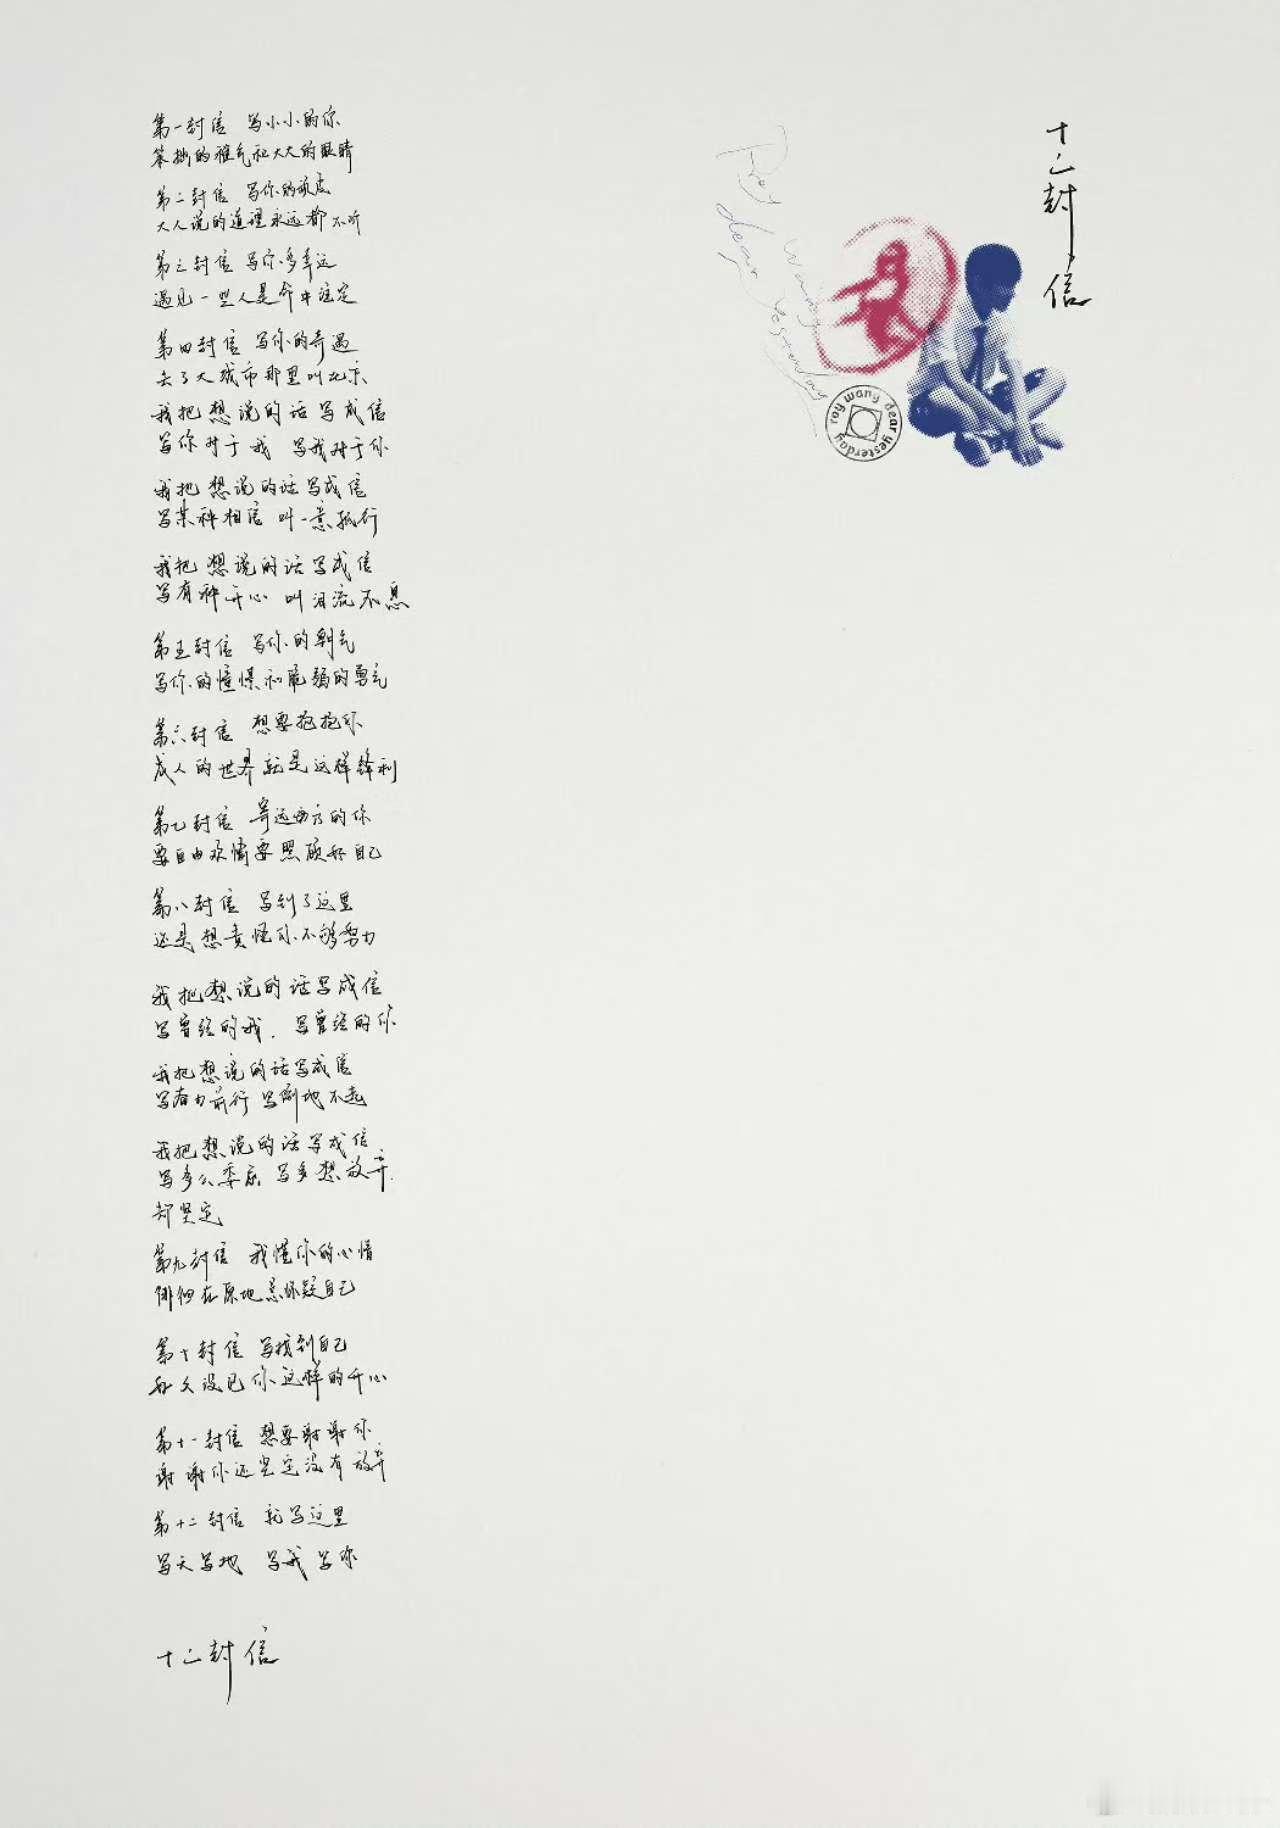 第一封信 写小小的你
笨拙的稚气和大大的眼睛
第二封信 写你的叛逆
大人说的道理永远都不听
第三封信 写你多幸运
遇见一些人是命中注定
第四封信 写你的奇遇
去了大城市那里叫北京
我把想说的话写成信
写你对于我 写我对于你
我把想说的话写成信
写某种相信 叫一意孤行
我把想说的话写成信
写有种开心 叫泪流不息
第五封信 写你的朝气
写你的憧憬和脆弱的勇气
第六封信 想要抱抱你
成人的世界就是这样锋利
第七封信 寄远方的你
要自由欢愉要照顾好自己
第八封信 写到了这里
还是想责怪你不够努力
我把想说的话写成信
写曾经的我. 写曾经的你
我把想说的话写成信
写奋力前行 写倒地不起
我把想说的话写成信
写多么委屈 写多想放弃
却坚定
第九封信 我懂你的心情
徘徊在原地总怀疑自己
第十封信 写找到自己
好久没见你这样的开心
第十一封信 想要谢谢你
谢谢你还坚定没有放弃
第十二封信 就写这里
写天写地 写我写你
十二封信
十二封信
Roy Wang
dear Yesterday
roy wang dear yesterday